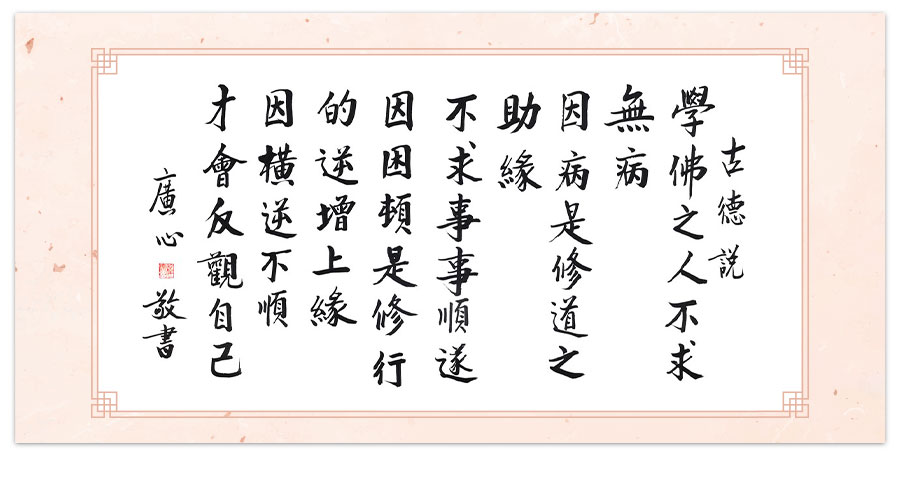 古德説
學佛之人不求
無病
因病是修道之
助緣
不求事事順遂
因困頓是修行
的逆增上緣
因橫逆不順
才會反觀自己
廣心
敬書